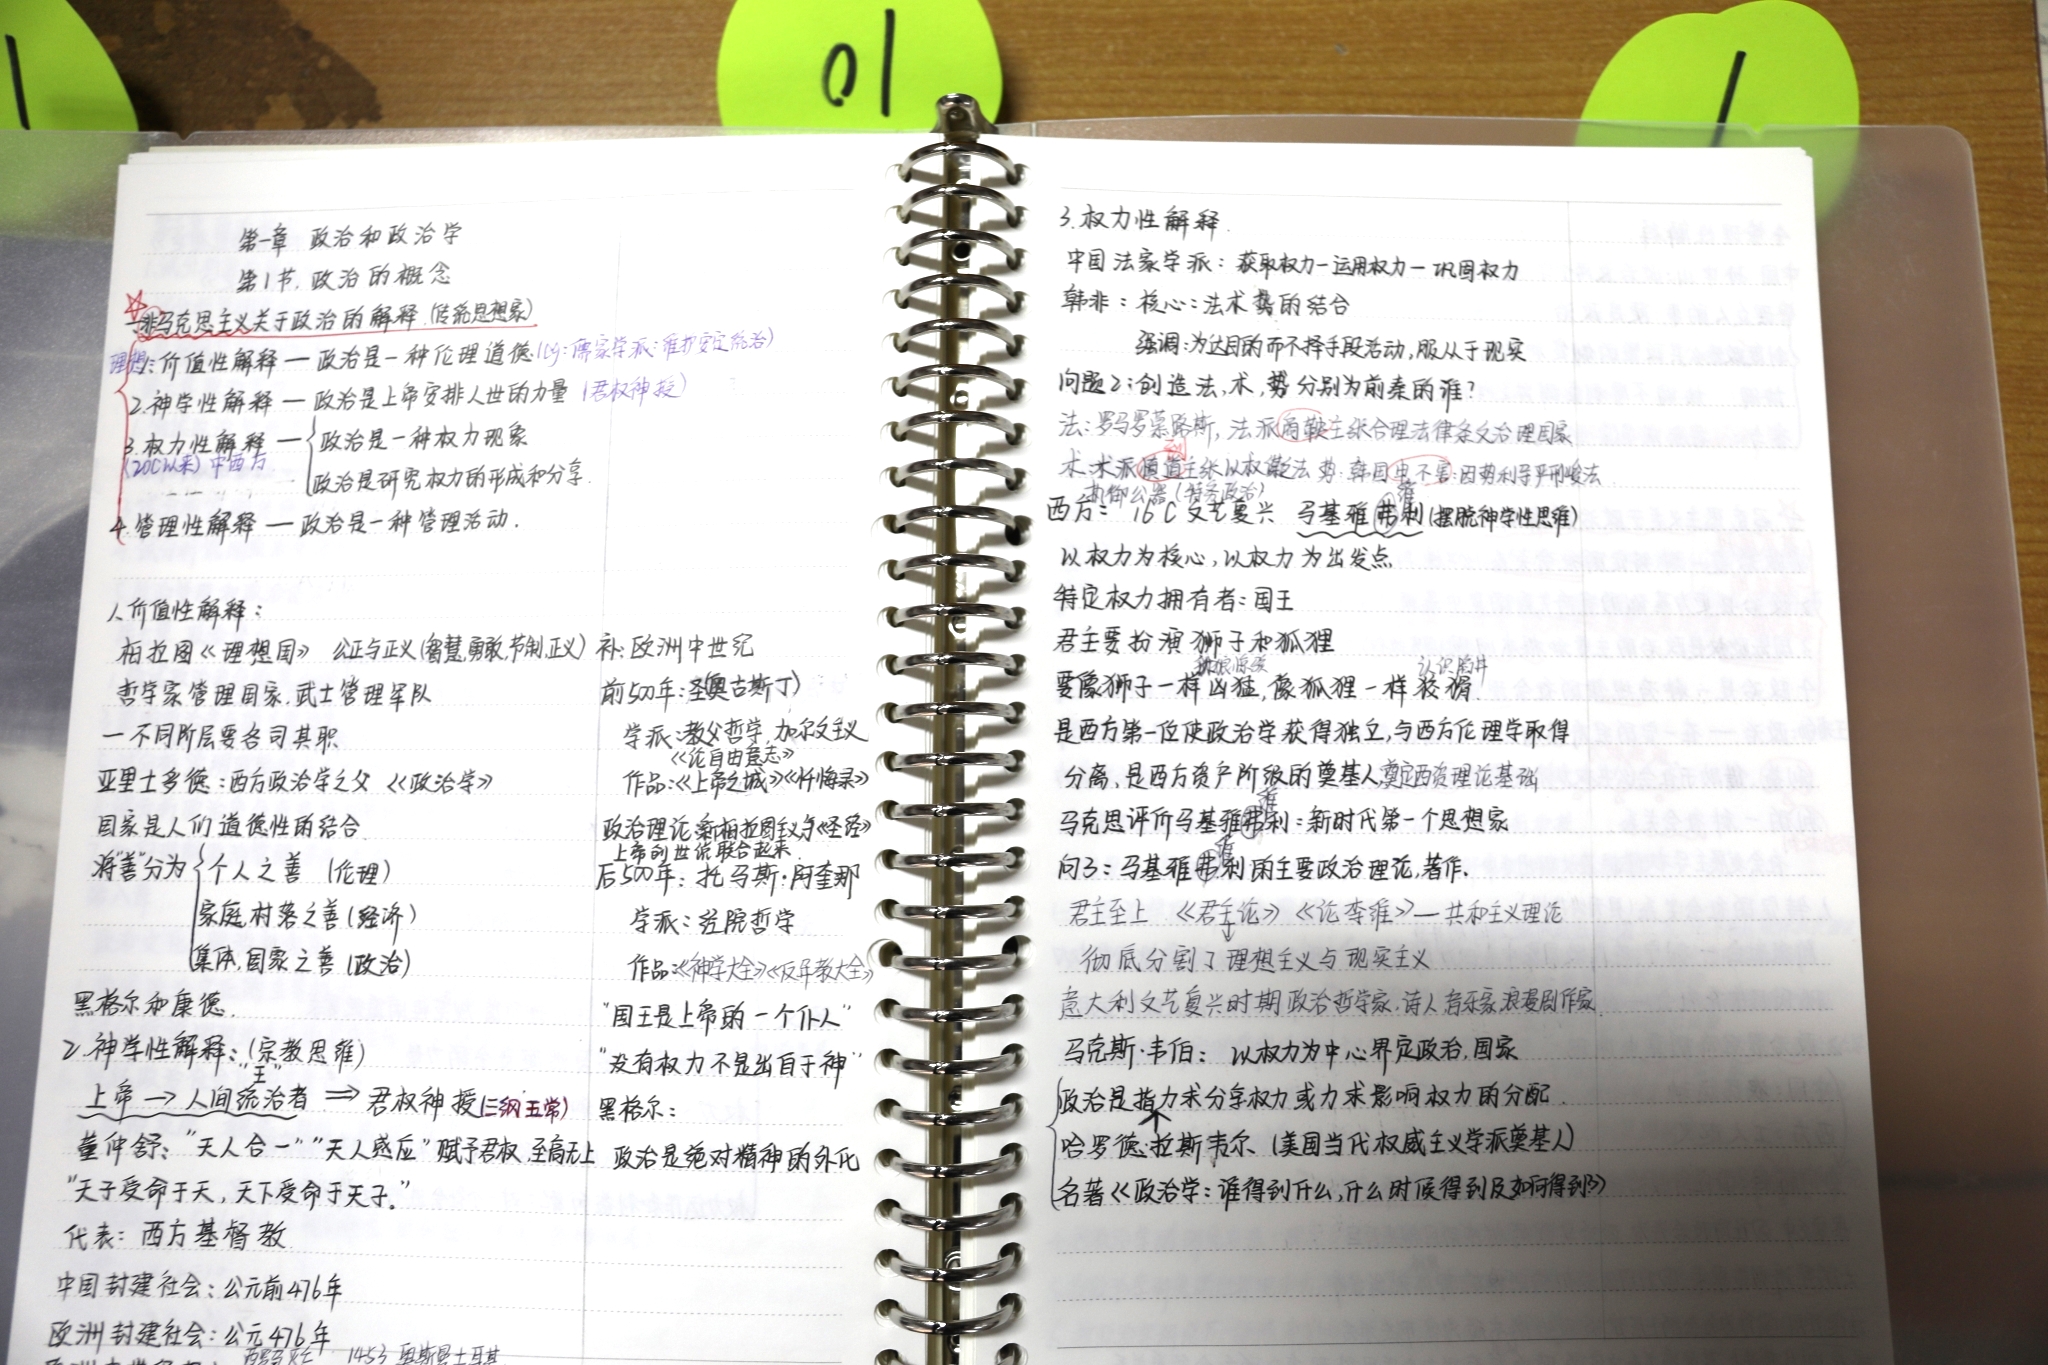 01
第一章 政治和政治学
第1节. 政治的概念
一.非马克思主义关于政治的解释.(传统思想家)
理想
1.价值性解释 — 政治是一种伦理道德(eg:儒家学派:维护安定统治)
2.神学性解释 — 政治是上帝安排人世的力量 (君权神授)
3.权力性解释 — 政治是一种权力现象
(20C以来)中西方
政治是研究权力的形成和分享.
4.管理性解释 — 政治是一种管理活动.
1.价值性解释:
柏拉图《理想国》 公正与正义(智慧,勇敢,节制,正义)
哲学家管理国家.武士管理军队
—不同阶层要各司其职
亚里士多德:西方政治学之父 《政治学》
国家是人们道德性的结合.
将"善"分为 个人之善 (伦理)
家庭,村落之善(经济)
集体,国家之善(政治)
黑格尔和康德.
2.神学性解释:(宗教思维)
"王"
上帝→人间统治者 ⇒ 君权神授(三纲五常)
董仲舒:"天人合一""天人感应"赋予君权,至高无上
"天子受命于天,天下受命于天子."
代表:西方基督教
中国封建社会:公元前476年
欧洲封建社会:公元476年
1453
补:欧洲中世纪
前500年:圣(奥古斯丁)
学派:教父哲学,加尔文主义
《论自由意志》
作品:《上帝之城》《忏悔录》
政治理论:新柏拉图主义与《圣经》
上帝创世说联合起来.
后500年:托马斯·阿奎那
学派:经院哲学
作品:《神学大全》《反异教大全》
"国王是上帝的一个仆人"
"没有权力不是出自于神"
黑格尔:
政治是绝对精神的外化
3.权力性解释.
中国法家学派:获取权力—运用权力—巩固权力
韩非:核心:法术势的结合
强调:为达目的而不择手段活动,服从于现实
问题2:创造法,术,势分别为前秦的谁?
法:罗马罗慕路斯,法派商鞅主张合理法律条文治理国家
到
术:术派慎道主张以权借法 势:韩国申不害:因势利导严刑峻法
执御公器(特务政治)
维
西方: 16C文艺复兴 马基雅弗利(摆脱神学性思维)
以权力为核心,以权力为出发点
特定权力拥有者:国王
君主要扮演狮子和狐狸
认识陷井
要像狮子一样凶猛,像狐狸一样狡猾.
是西方第一位使政治学获得独立,与西方伦理学取得
分离,是西方资产阶级的奠基人,奠定西资理论基础
维
马克思评价马基雅弗利:新时代第一个思想家
维
问3:马基雅弗利的主要政治理论,著作.
君主至上 《君主论》《论李维》—共和主义理论
↓
彻底分割了理想主义与现实主义
意大利文艺复兴时期政治哲学家,诗人,音乐家,浪漫剧作家.
马克斯·韦伯: 以权力为中心界定政治,国家
政治是指力求分享权力或力求影响权力的分配.
哈罗德·拉斯韦尔 (美国当代权威主义学派奠基人)
名著《政治学:谁得到什么,什么时候得到及如何得到?》